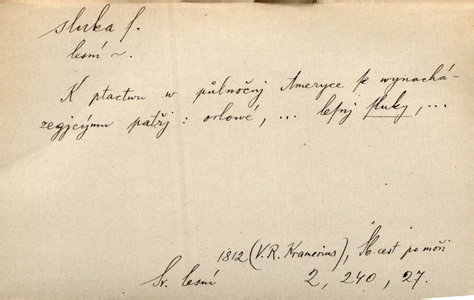 sluka f.
lesní ~.
K ptactwu w půlnočnj Ameryce se wynachá-
zegjcýmu patřj : orlowé, ... lesnj sluky, ...
1812 (V. R. Kramerius), Sb. cest po moři
Sr. lesní 2, 240, 27.